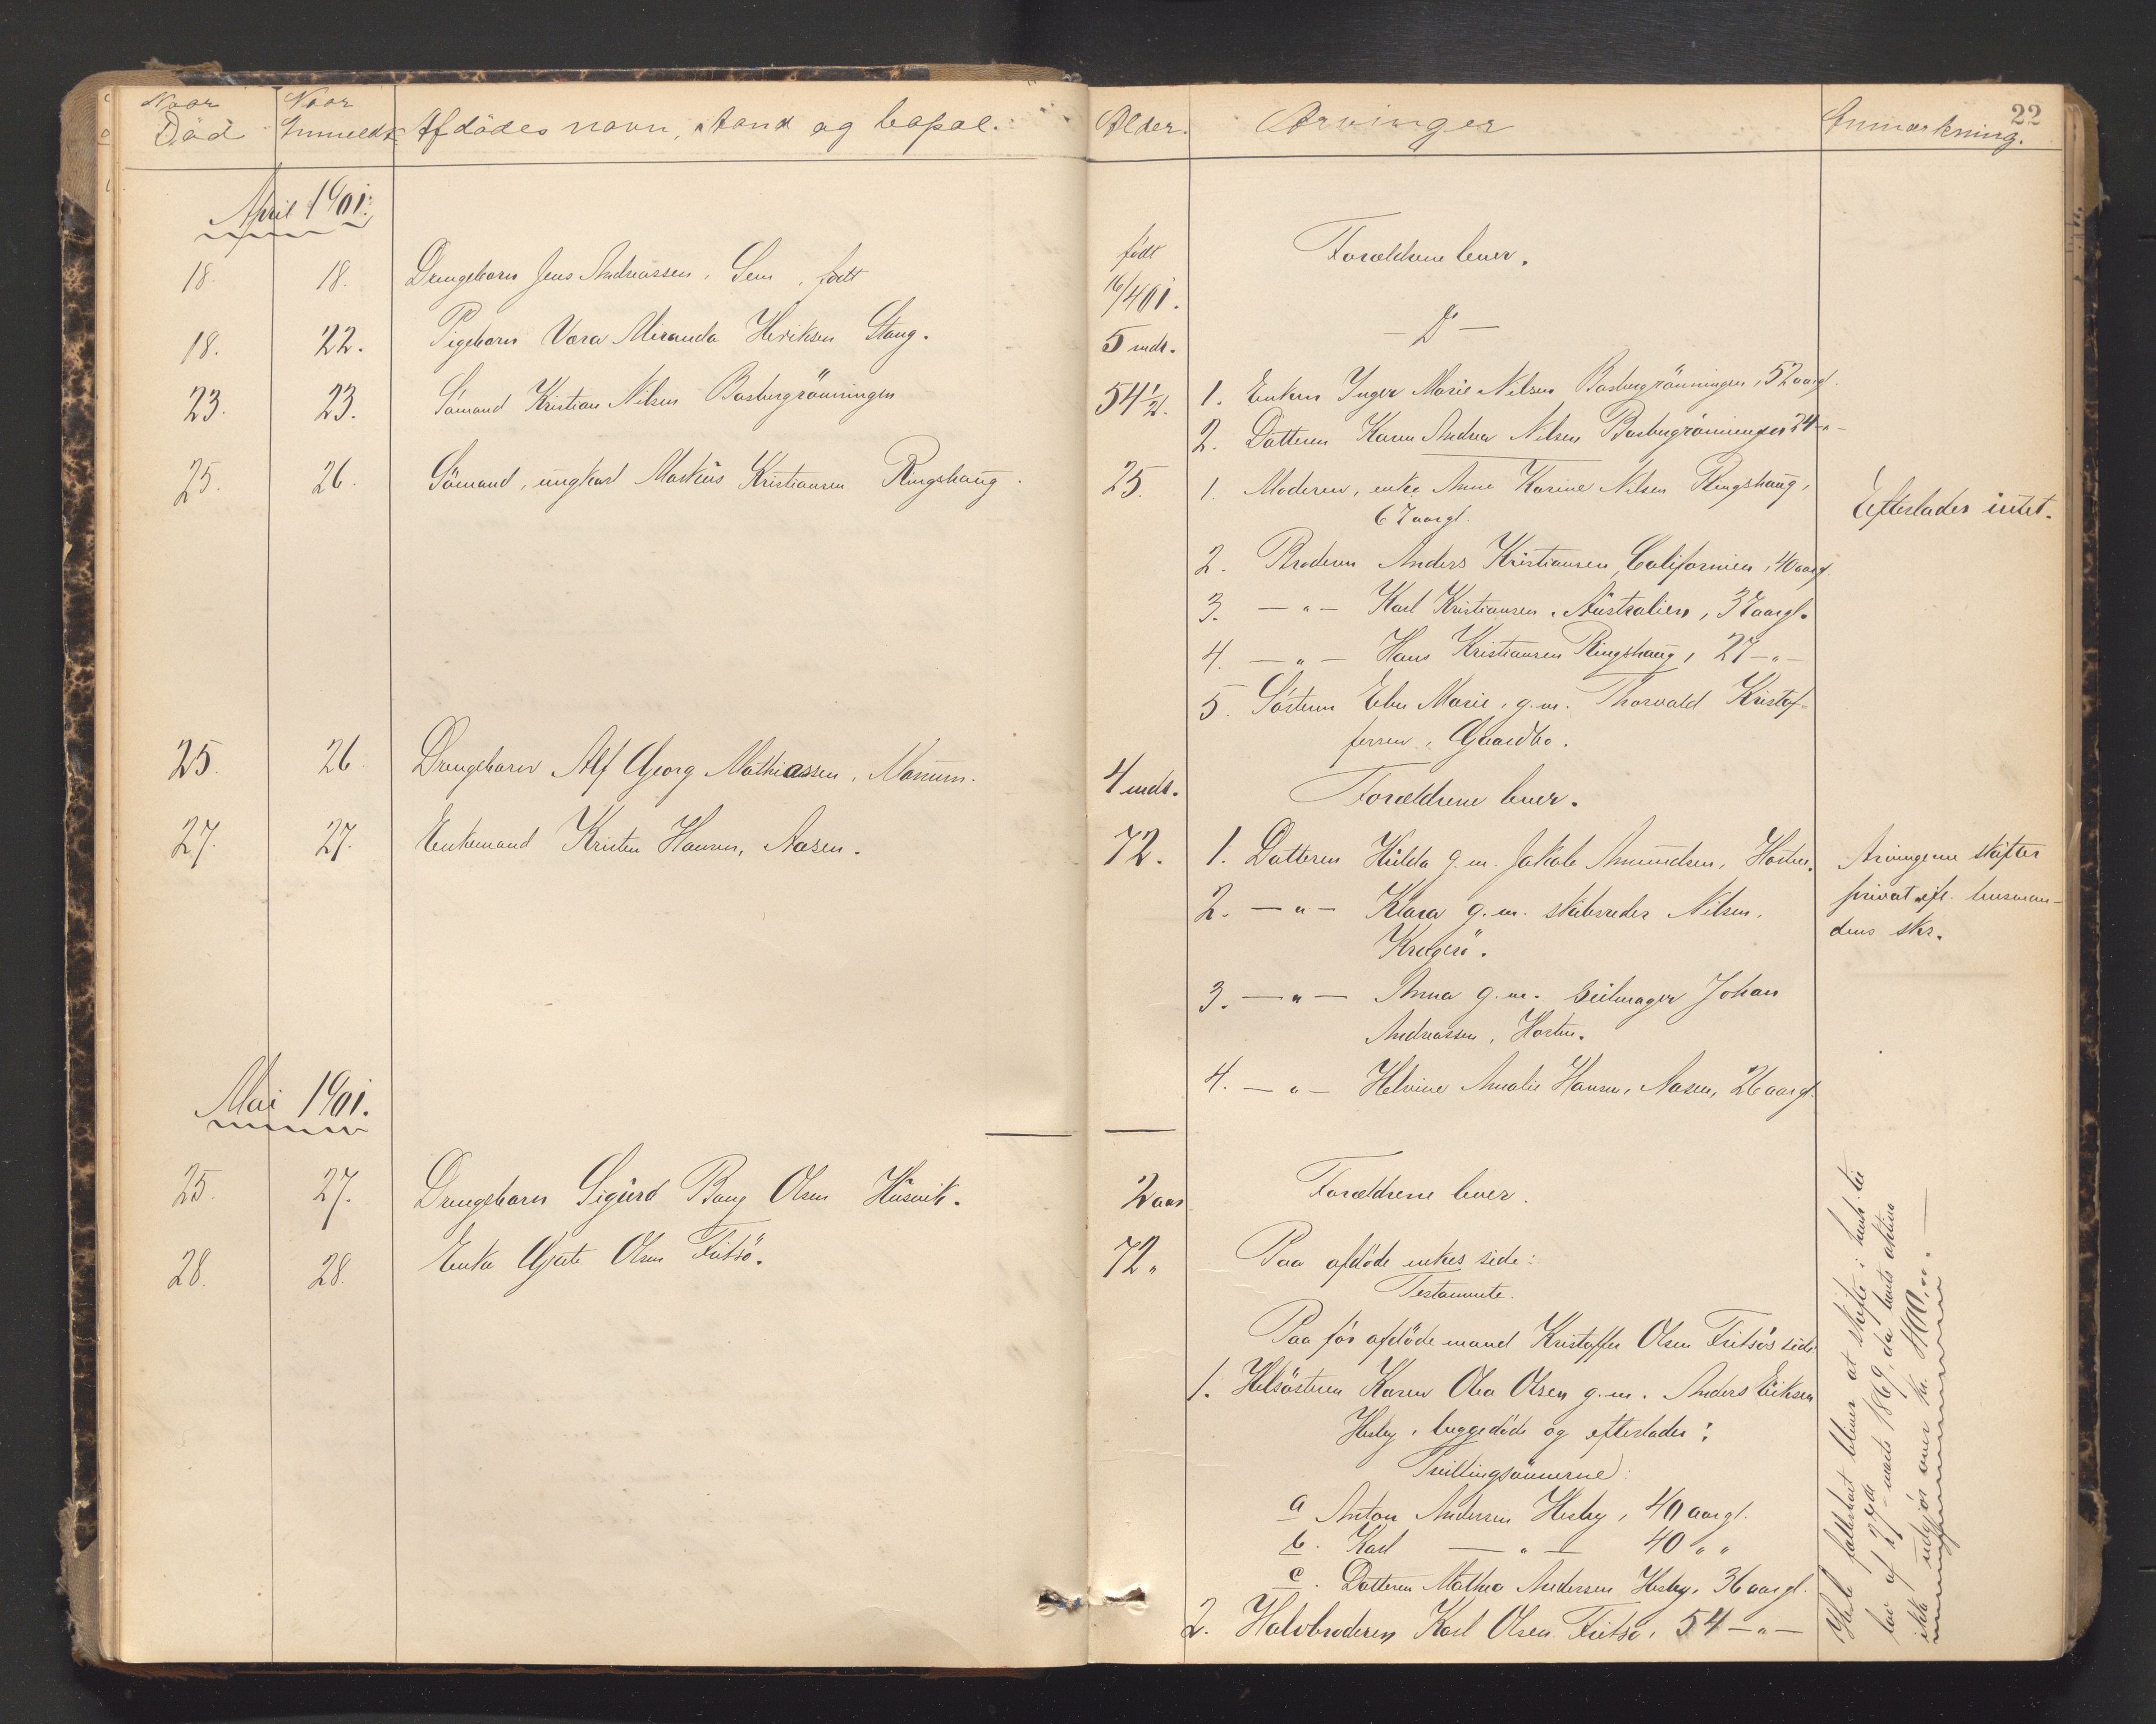 Naar Død
Naar Anmeldt
Afdødes navn, stand og bopæl.
Alder.
Arvinger
Anmærkning.
22
April 1901.
18. 18. Drengebarn Jens Andreassen, Sem, født
født 16/4 01.
Forældrene lever.
18. 22. Pigebarn Vera Miranda Henriksen Stang.
5 mdr.
— Do —
23. 23. Sömand Kristian Nilsen Basbergrönningen
54 1/2.
1. Enken Inger Marie Nilsen Basbergrönningen, 52 aargl.
2. Datteren Karen Andrea Nilsen Basbergrönningen 24 –"–
25. 26. Sömand, ungkarl Markus Kristiansen Ringshaug.
25.
1. Moderen, enke Anne Karine Nilsen Ringshaug,
67 aargl.
Efterlader intet.
2. Broderen Anders Kristiansen, Californien, 40 aargl.
3. —"— Karl Kristiansen, Australien, 37 aargl.
4. —"— Hans Kristiansen Ringshaug, 27 –"–
5. Sösteren Ebn Marie, g.m. Thorvald Kristof-
fersen, Gaardbo.
25. 26 Drengebarn Alf Georg Mathiassen, Nanum.
4 mdr.
Forældrene lever.
27. 27. Enkemand Kristen Hansen, Aasen.
72.
1. Datteren Hilda g.m. Jakob Amundsen, Horten.
2. —"— Klara g.m. skibsreder Nilsen,
Kragerö.
3. —"— Anna g.m. Seilmager Johan
Andreassen, Horten.
4. —"— Helvine Amalie Hansen, Aasen, 26 aargl.
Arvingerne skifter
privat efl. lensman-
dens skr.
Mai 1901.
25. 27. Drengebarn Sigurd Bang Olsen Husvik.
2 aar
Forældrene lever.
28. 28. Enke Gjate Olsen Fritsö.
72.
Paa afdöde enkes side:
Testamente.
Paa för afdöde mand Kristoffer Olsen Fritsös side
1. Helsösteren Karen Olea Olsen g.m. Anders Eriksen
Hesby, begge döde og efterlader:
Tvillingsönnerne:
a Anton Andersen Hesby, 40 aargl.
b. Karl —"— 40 " "
c. Datteren Mathea Andersen Hesby, 36 aargl.
2. Halvbroderen Karl Olsen Fritsö, 54 –"–
Hele fællesboet bliver at skifte i henh. til
lov af 27de marts 1869, da boets aktiva
ikke udgjör over kr. 400,00.